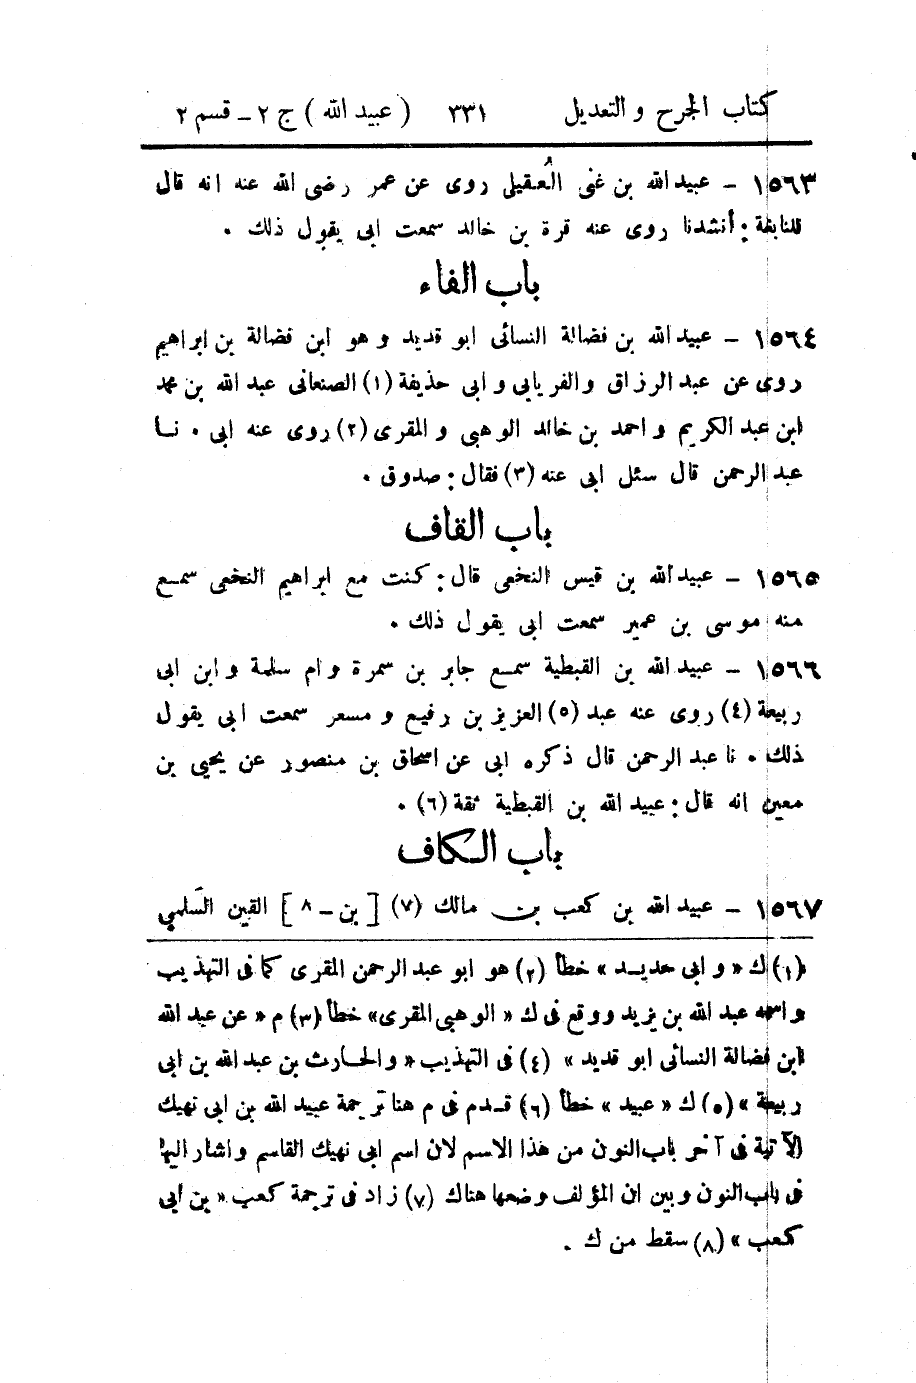 كتاب الجرح و التعديل ٣٣١ ( عبيد الله ) ج ٢ – قسم ٢
١٥٦٣ – عبيد الله بن غنى العُقيلى روى عن عمر رضى الله عنه انه قال
للنابغة : أنشدنا روى عنه قرة بن خالد سمعت ابى يقول ذلك .
باب الفاء
١٥٦٤ – عبيد الله بن فضالة النسائى ابو قديد و هو ابن فضالة بن ابراهيم
روى عن عبد الرزاق والفريابى و ابى حذيفة (١) الصنعانى عبد الله بن محمد
ابن عبد الكريم و احمد بن خالد الوهبى و المقرى (٢) روى عنه ابى . نا
عبد الرحمن قال سئل ابى عنه (٣) فقال : صدوق .
باب القاف
١٥٦٥ – عبيد الله بن قيس النخعى قال : كنت مع ابراهيم النخعى سمع
منه موسى بن عمير سمعت ابى يقول ذلك .
١٥٦٦ – عبيد الله بن القبطية سمع جابر بن سمرة و ام سلمة و ابن ابى
ربيعة (٤) روى عنه عبد (٥) العزيز بن رفيع و مسعر سمعت ابى يقول
ذلك . نا عبد الرحمن قال ذكره ابى عن اسحاق بن منصور عن يحيى بن
معين انه قال : عبيد الله بن القبطية ثقة (٦) .
باب الكاف
١٥٦٧ – عبيد الله بن كعب بن مالك (٧) [ بن – ٨ ] القين السَلمي
(١) ك « و ابى حديد » خطأ (٢) هو ابو عبد الرحمن المقرى كما فى التهذيب
و اسمه عبد الله بن يزيد ووقع فى ك « الوهبى المقرى» خطأ (٣) م « عن عبد الله
ابن فضالة النسائى ابو قديد » (٤) فى التهذيب « والحارث بن عبد الله بن ابى
ربيعة » (٥) ك « عبيد » خطأ (٦) قدم فى م هنا ترجمة عبيد الله بن ابى نهيك
الآتية فى آخر باب النون من هذا الاسم لان اسم ابى نهيك القاسم و اشار اليها
فى باب النون و بين ان المؤلف وضعها هناك (٧) زاد فى ترجمة كعب « بن ابى
كعب » (٨) سقط من ك .